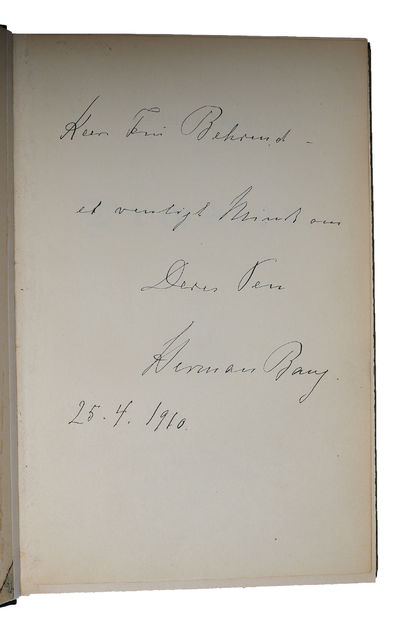 Kære Fru Behrend -
et venligt Minde om
Deres Ven
Herman Bang.
25. 4. 1910.